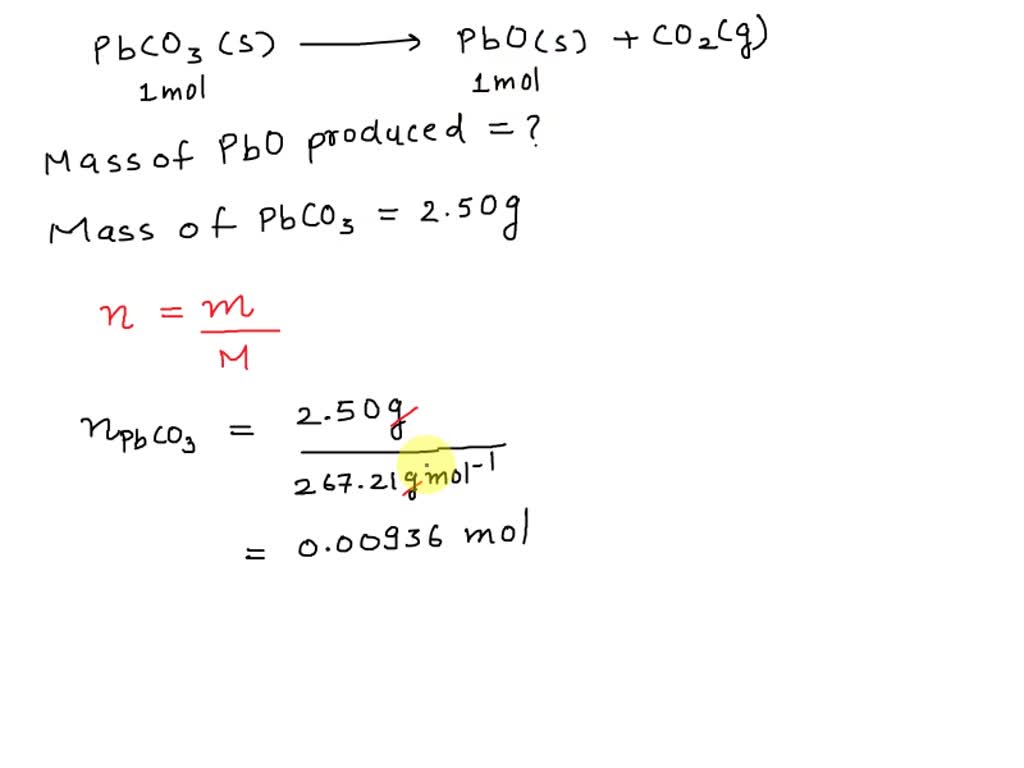 PbCO₃ (s) ⟶ PbO(s) + CO₂(g)
1mol 1mol
Mass of PbO produced = ?
Mass of PbCO₃ = 2.50g
n = m
M
nPbCO₃ = 2.50g
267.21 g mol⁻¹
= 0.00936 mol